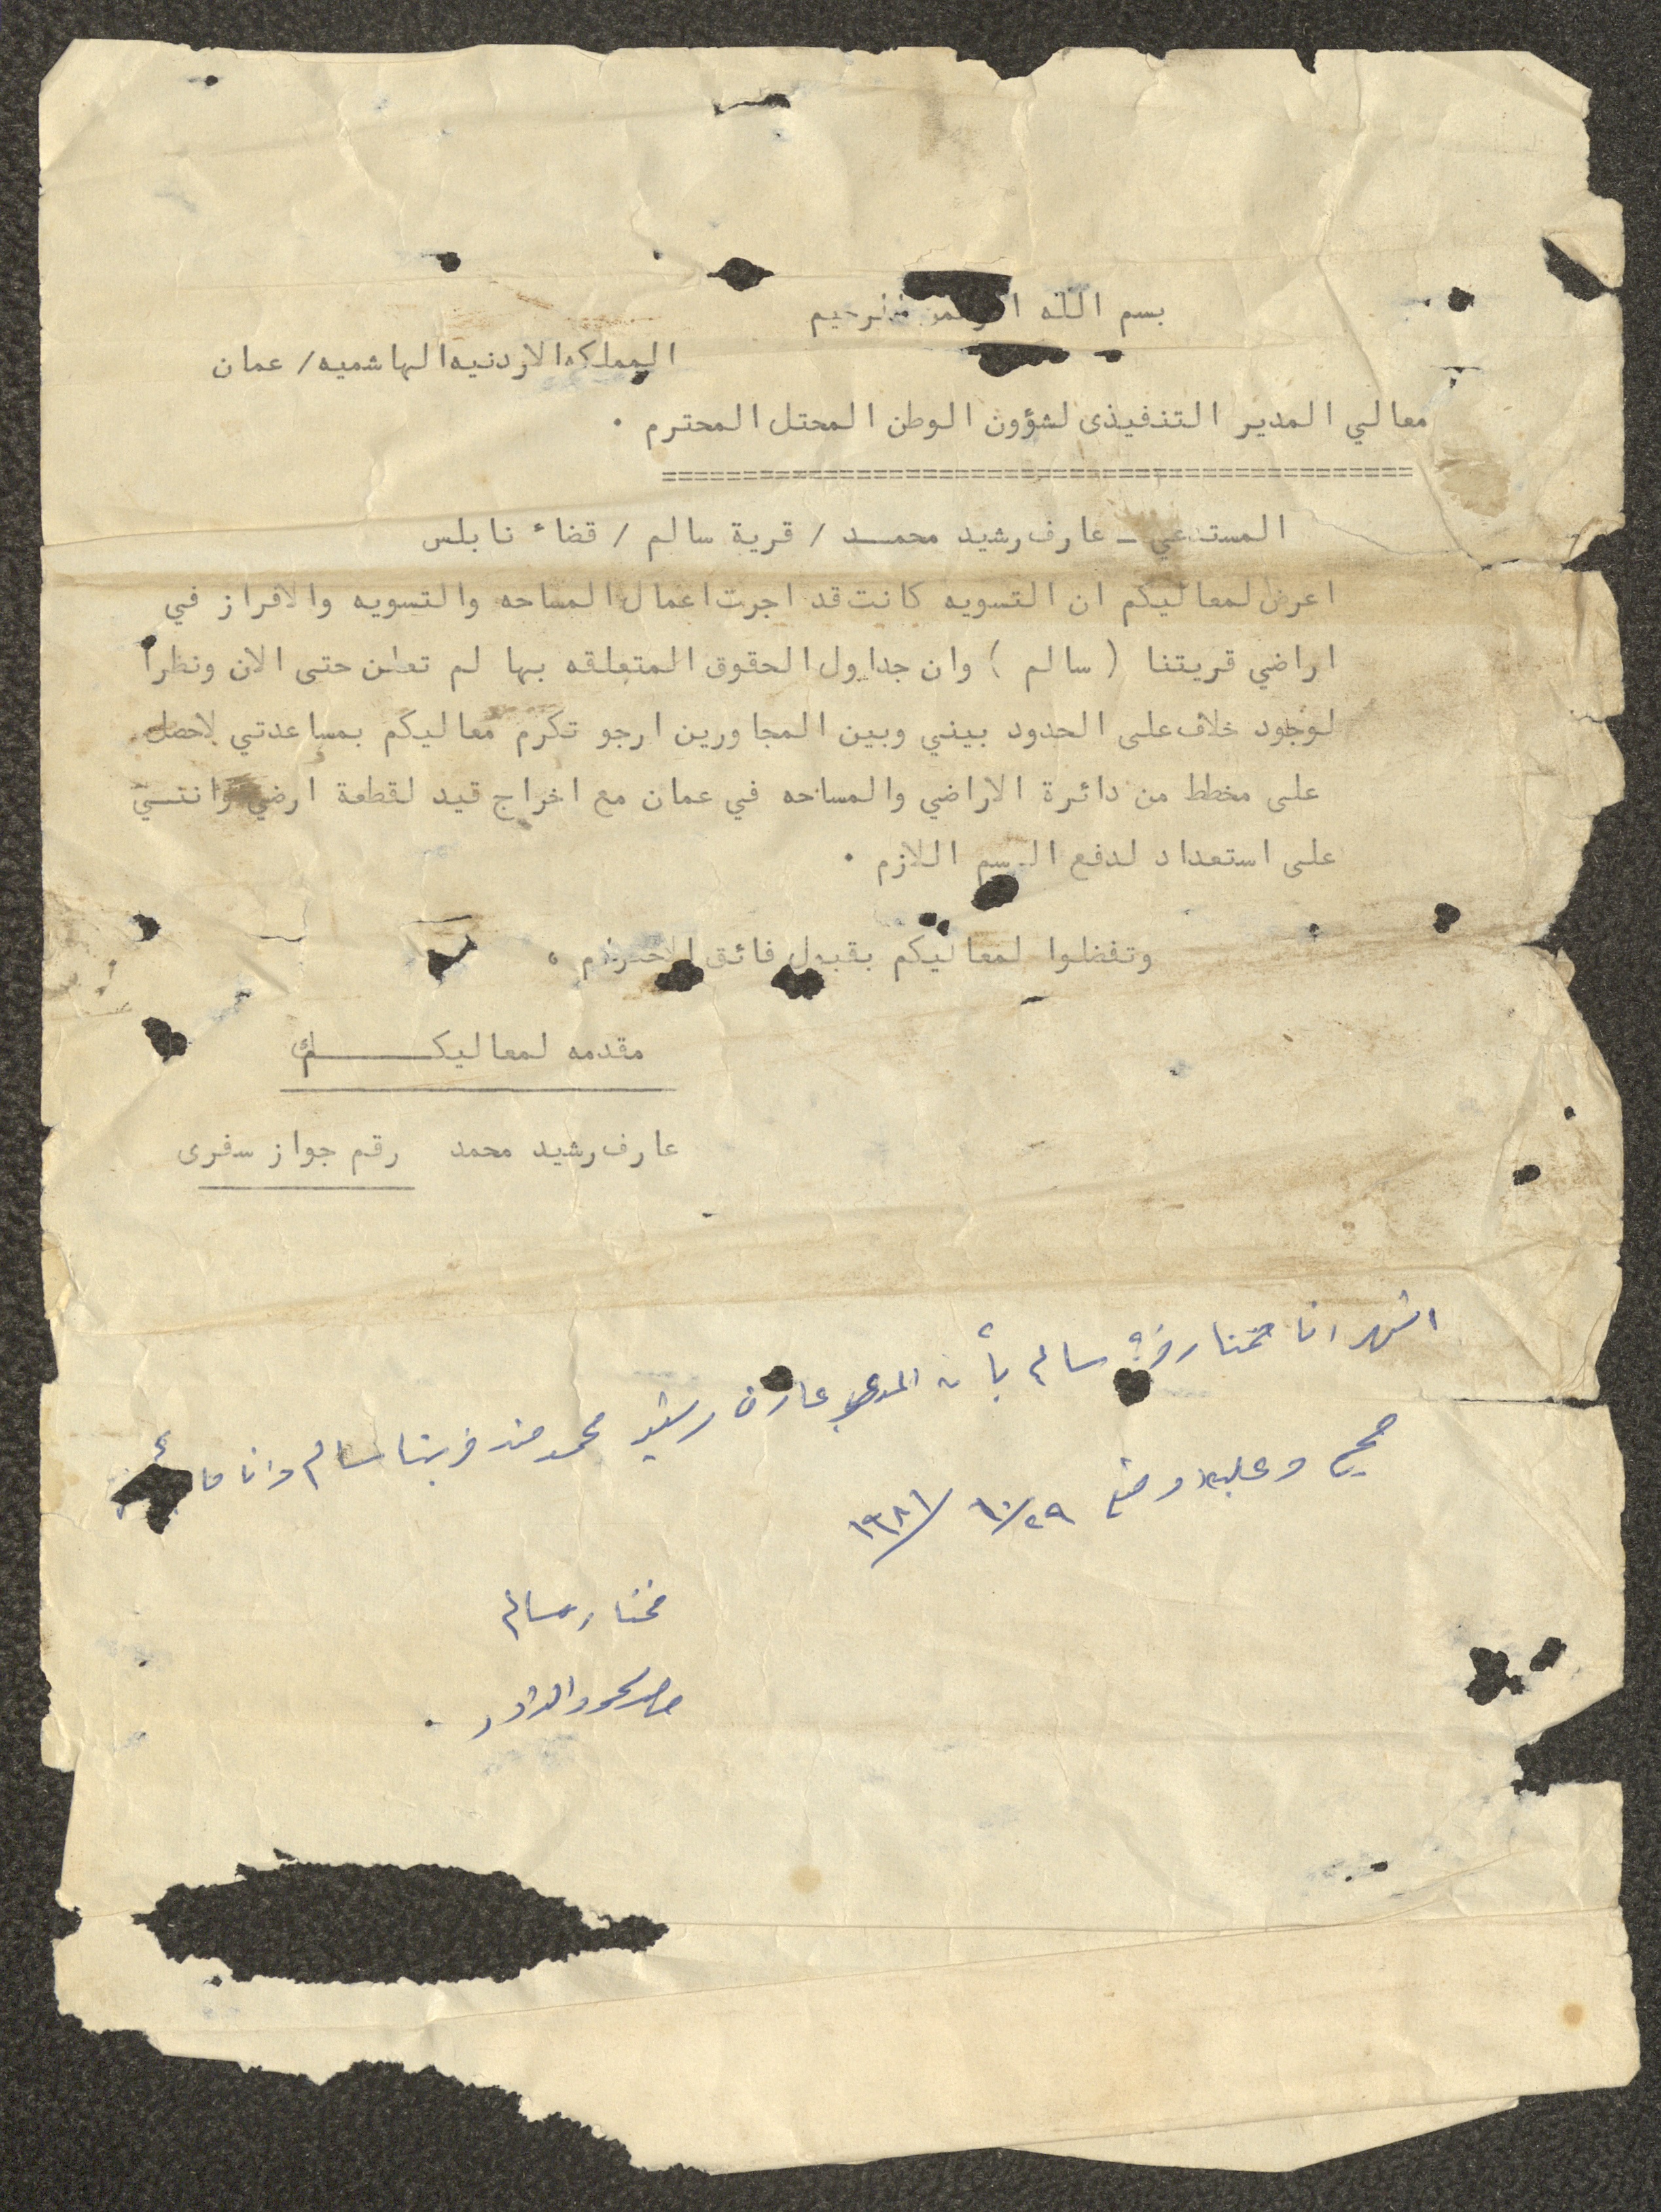 بسم الله الرحمن الرحيم
المملكه الاردنيه الهاشميه / عمان
معالي المدير التنفيذى لشؤون الوطن المحتل المحترم .
===============================================
المستدعي ـ عارف رشيد محمـــد / قرية سالم / قضاء نابلس
اعرض لمعاليكم ان التسويه كانت قد اجرت اعمال المساحه والتسويه والافراز في
اراضي قريتنا ( سالم ) وان جداول الحقوق المتعلقه بها لم تعلن حتى الان ونظرا
لوجود خلاف على الحدود بيني وبين المجاورين ارجو تكرم معاليكم بمساعدتي لاحصل
على مخطط من دائرة الاراضي والمساحه في عمان مع اخراج قيد لقطعة ارضي وانتي
على استعداد لدفع الرسم اللازم .
وتفضلوا لمعاليكم بقبول فائق الاحترام ،
مقدمه لمعاليكـــــــم
عارف رشيد محمد رقم جواز سفرى
اشهد انا مختار قرية سالم بأن المدعي عارف رشيد محمد من قريتنا سالم وانا
صحيح وعليه اوقع ٢٩/١٠/١٩٨١
مختار سالم